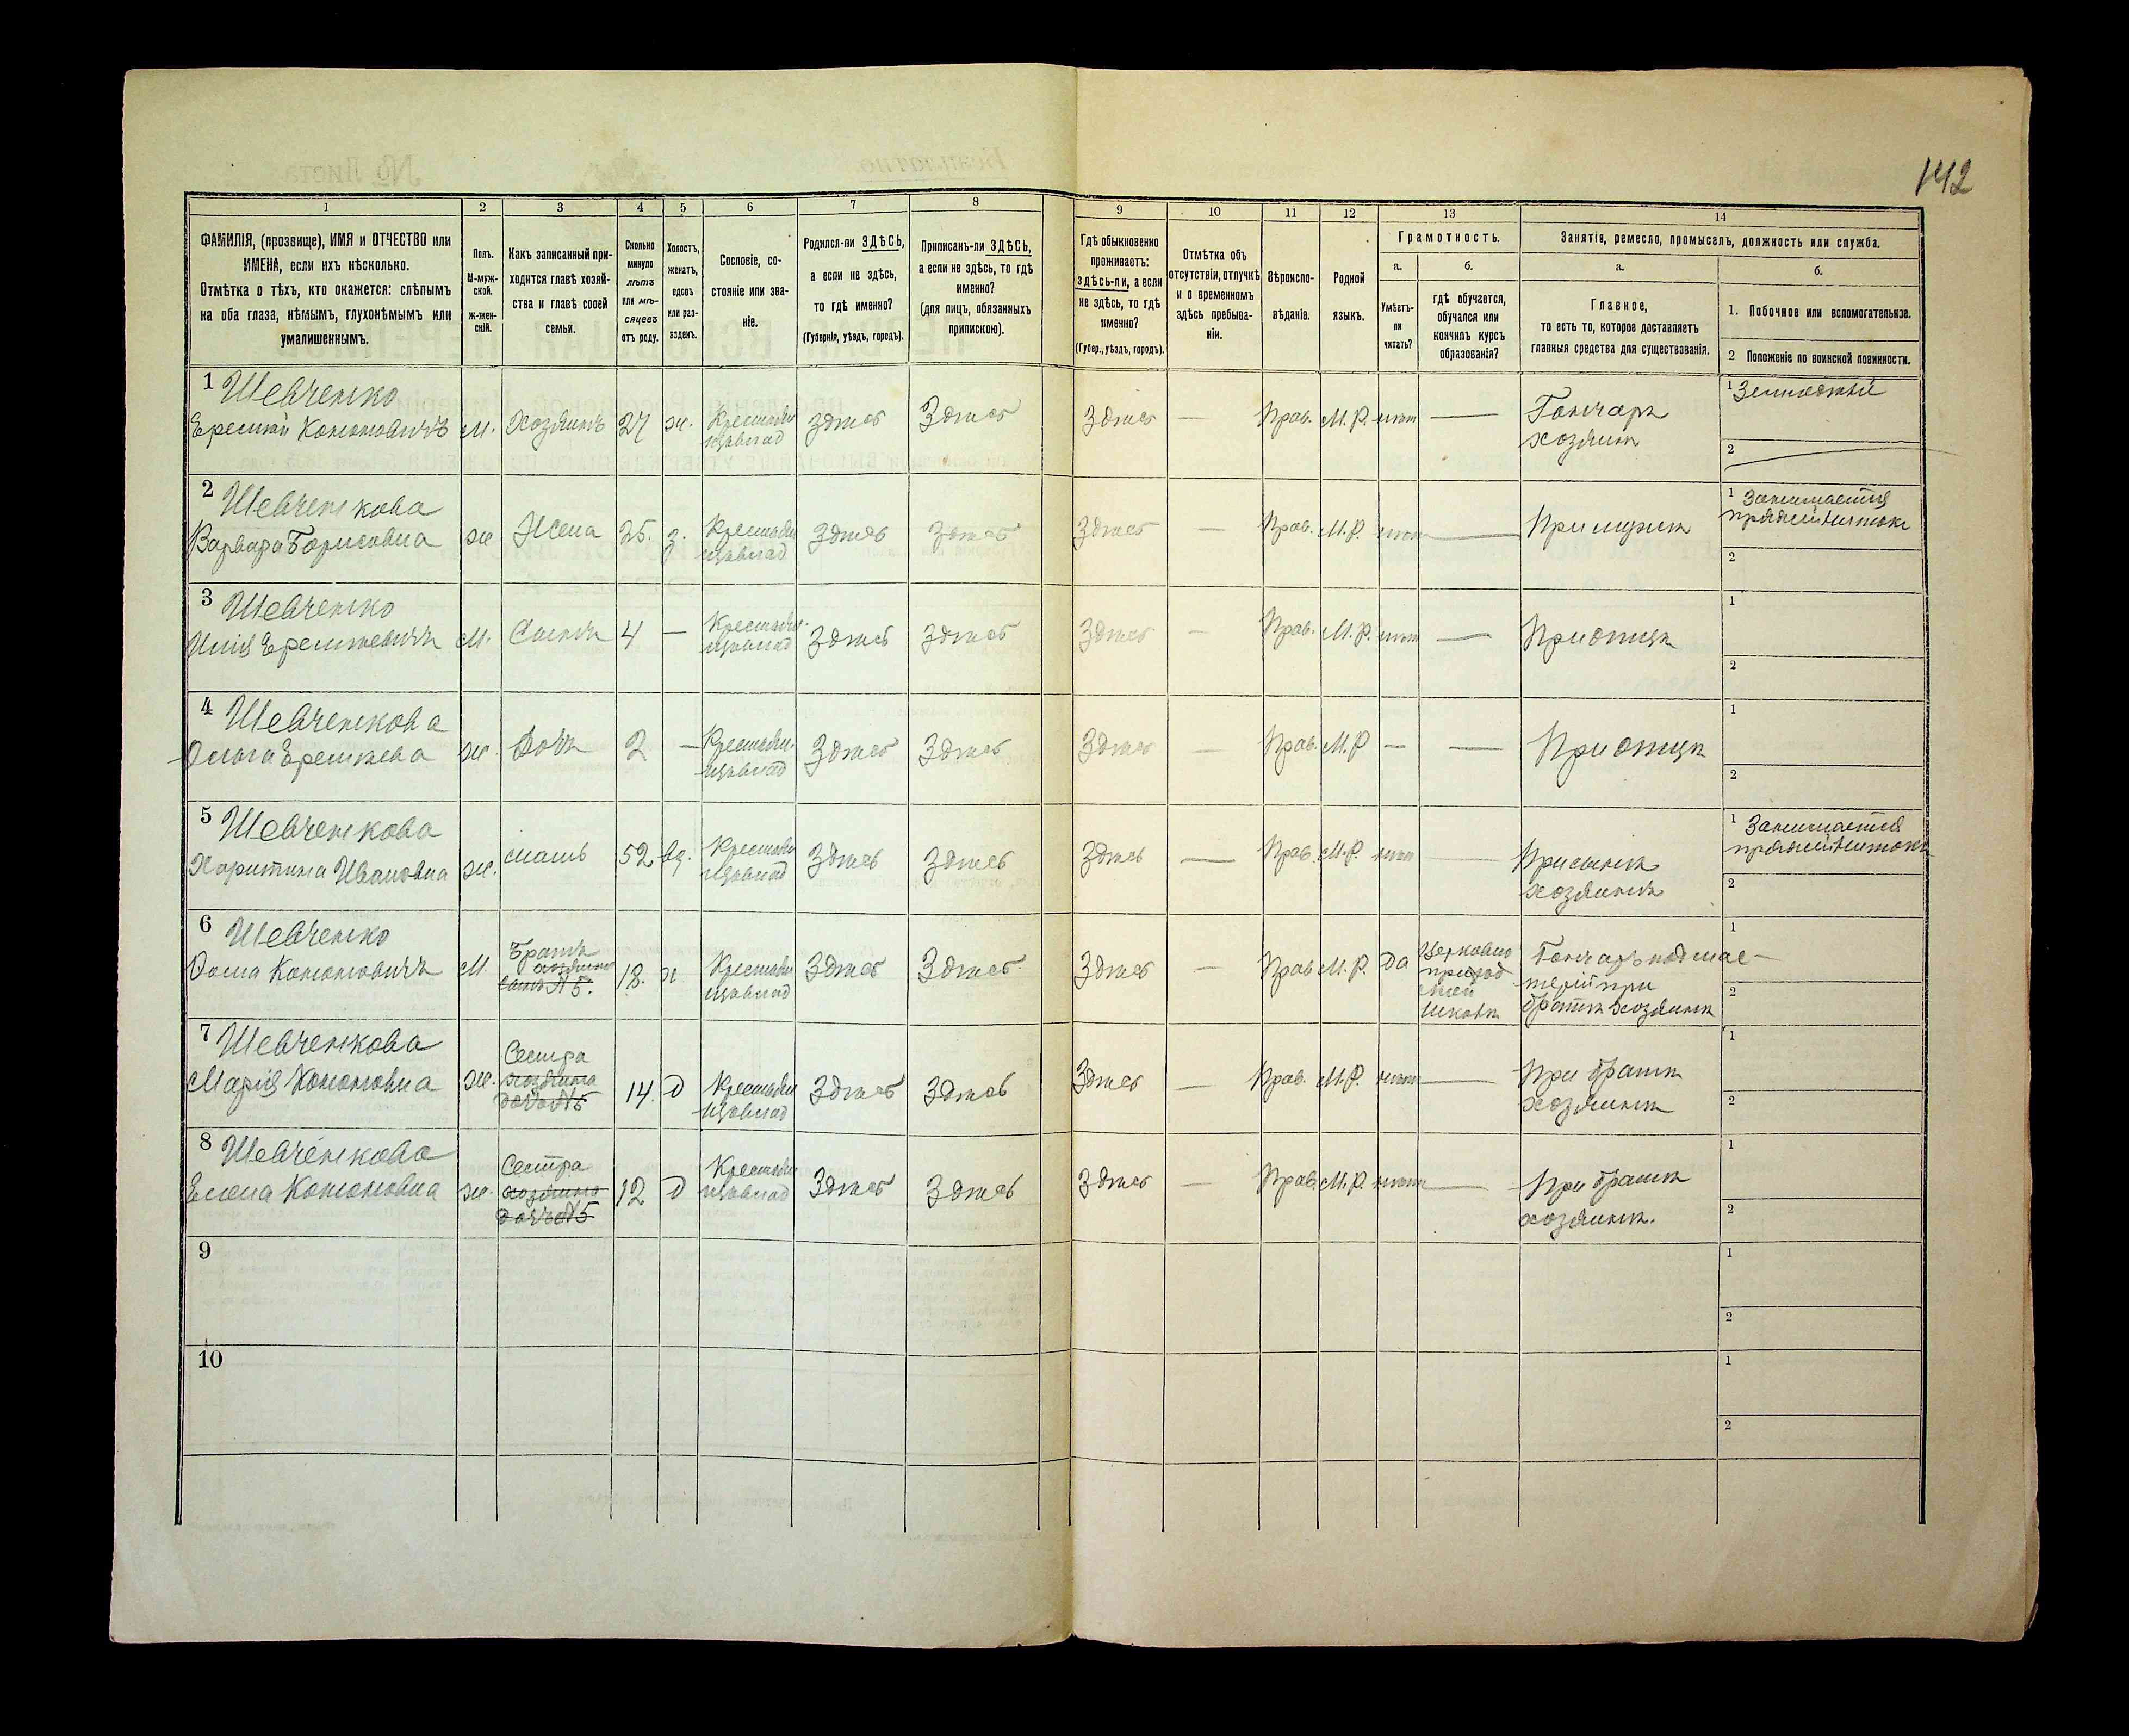 142
1
2
3
4
5
6
7
8
9
10
11
12
13
14
ФАМИЛІЯ, (прозвище), ИМЯ и ОТЧЕСТВО или
ИМЕНА, если ихъ нѣсколько.
Отмѣтка о тѣхъ, кто окажется: слѣпымъ
на оба глаза, нѣмымъ, глухонѣмымъ или
умалишеннымъ.
Полъ.
М-муж-
ской.
ж-жен-
скій.
Какъ записанный при-
ходится главѣ хозяй-
ства и главѣ своей
семьи.
Сколько
минуло
лѣтъ
или мѣ-
сяцевъ
отъ роду.
Холостъ,
женатъ,
вдовъ
или раз-
веденъ.
Сословіе, со-
стояніе или зва-
ніе.
Родился-ли ЗДѢСЬ,
а если не здѣсь,
то гдѣ именно?
(Губернія, уѣздъ, городъ).
Приписанъ-ли ЗДѢСЬ,
а если не здѣсь, то гдѣ
именно?
(для лицъ, обязанныхъ
припискою).
Гдѣ обыкновенно
проживаетъ:
здѣсь-ли, а если
не здѣсь, то гдѣ
именно?
(Губер., уѣздъ, городъ).
Отмѣтка объ
отсутствіи, отлучкѣ
и о временномъ
здѣсь пребыва-
ніи.
Вѣроиспо-
вѣданіе.
Родной
языкъ.
Грамотность.
а.
Умѣетъ-
ли
читать?
б.
гдѣ обучается,
обучался или
кончилъ курсъ
образованія?
Занятія, ремесло, промыселъ, должность или служба.
а.
Главное,
то есть то, которое доставляетъ
главныя средства для существованія.
б.
1. Побочное или вспомогательное.
2 Положеніе по воинской повинности.
1 Шевченко
Еремѣй Кононовичъ
м. Хозяинъ 27 ж. Крестьян. здѣсь Здѣсь Здѣсь — Прав. М.Р. нѣтъ — Гончаръ
хозяинъ
1
2
2 Шевченкова
Варвара Борисовна
ж Жена 25. з. Крестьян Здѣсь Здѣсь Здѣсь — Прав. М.Р. нѣтъ — При мужѣ
1 Занимается
2
3 Шевченко
М. Сынъ 4 — Крестьян. Здѣсь Здѣсь Здѣсь — Прав. М.Р. нѣтъ — При отцѣ
1
2
4 Шевченкова
Ольга
ж. Дочь 2 — Крестьян. Здѣсь Здѣсь Здѣсь — Прав. М.Р — — При отцѣ
1
2
5 Шевченкова
Харитина Ивановна
ж. мать 52 вд. Крестьян Здѣсь Здѣсь Здѣсь — Прав. М.Р. нѣтъ — При сынѣ
хозяинѣ
1 Занимается
2
6 Шевченко
Фома Кононовичъ
М Братъ
хозяина
сынъ №5.
18. х Крестьян Здѣсь Здѣсь Здѣсь — Прав М.Р. Да
Церковно
приход
ской
школѣ
Гончаръ подмас-
терій при
братѣ хозяинѣ
1
2
7 Шевченкова
Марія Кононовна
ж. Сестра
хозяина
дочь №5
14. д Крестьян Здѣсь Здѣсь Здѣсь — Прав. М.Р. нѣтъ — При братѣ
хозяинѣ
1
2
8 Шевченкова
Елена Кононовна
ж. Сестра
хозяина
дочь №5
12 д Крестьян Здѣсь Здѣсь Здѣсь — Прав. М.Р. нѣтъ — При братѣ
хозяинѣ.
1
2
9
1
2
10
1
2